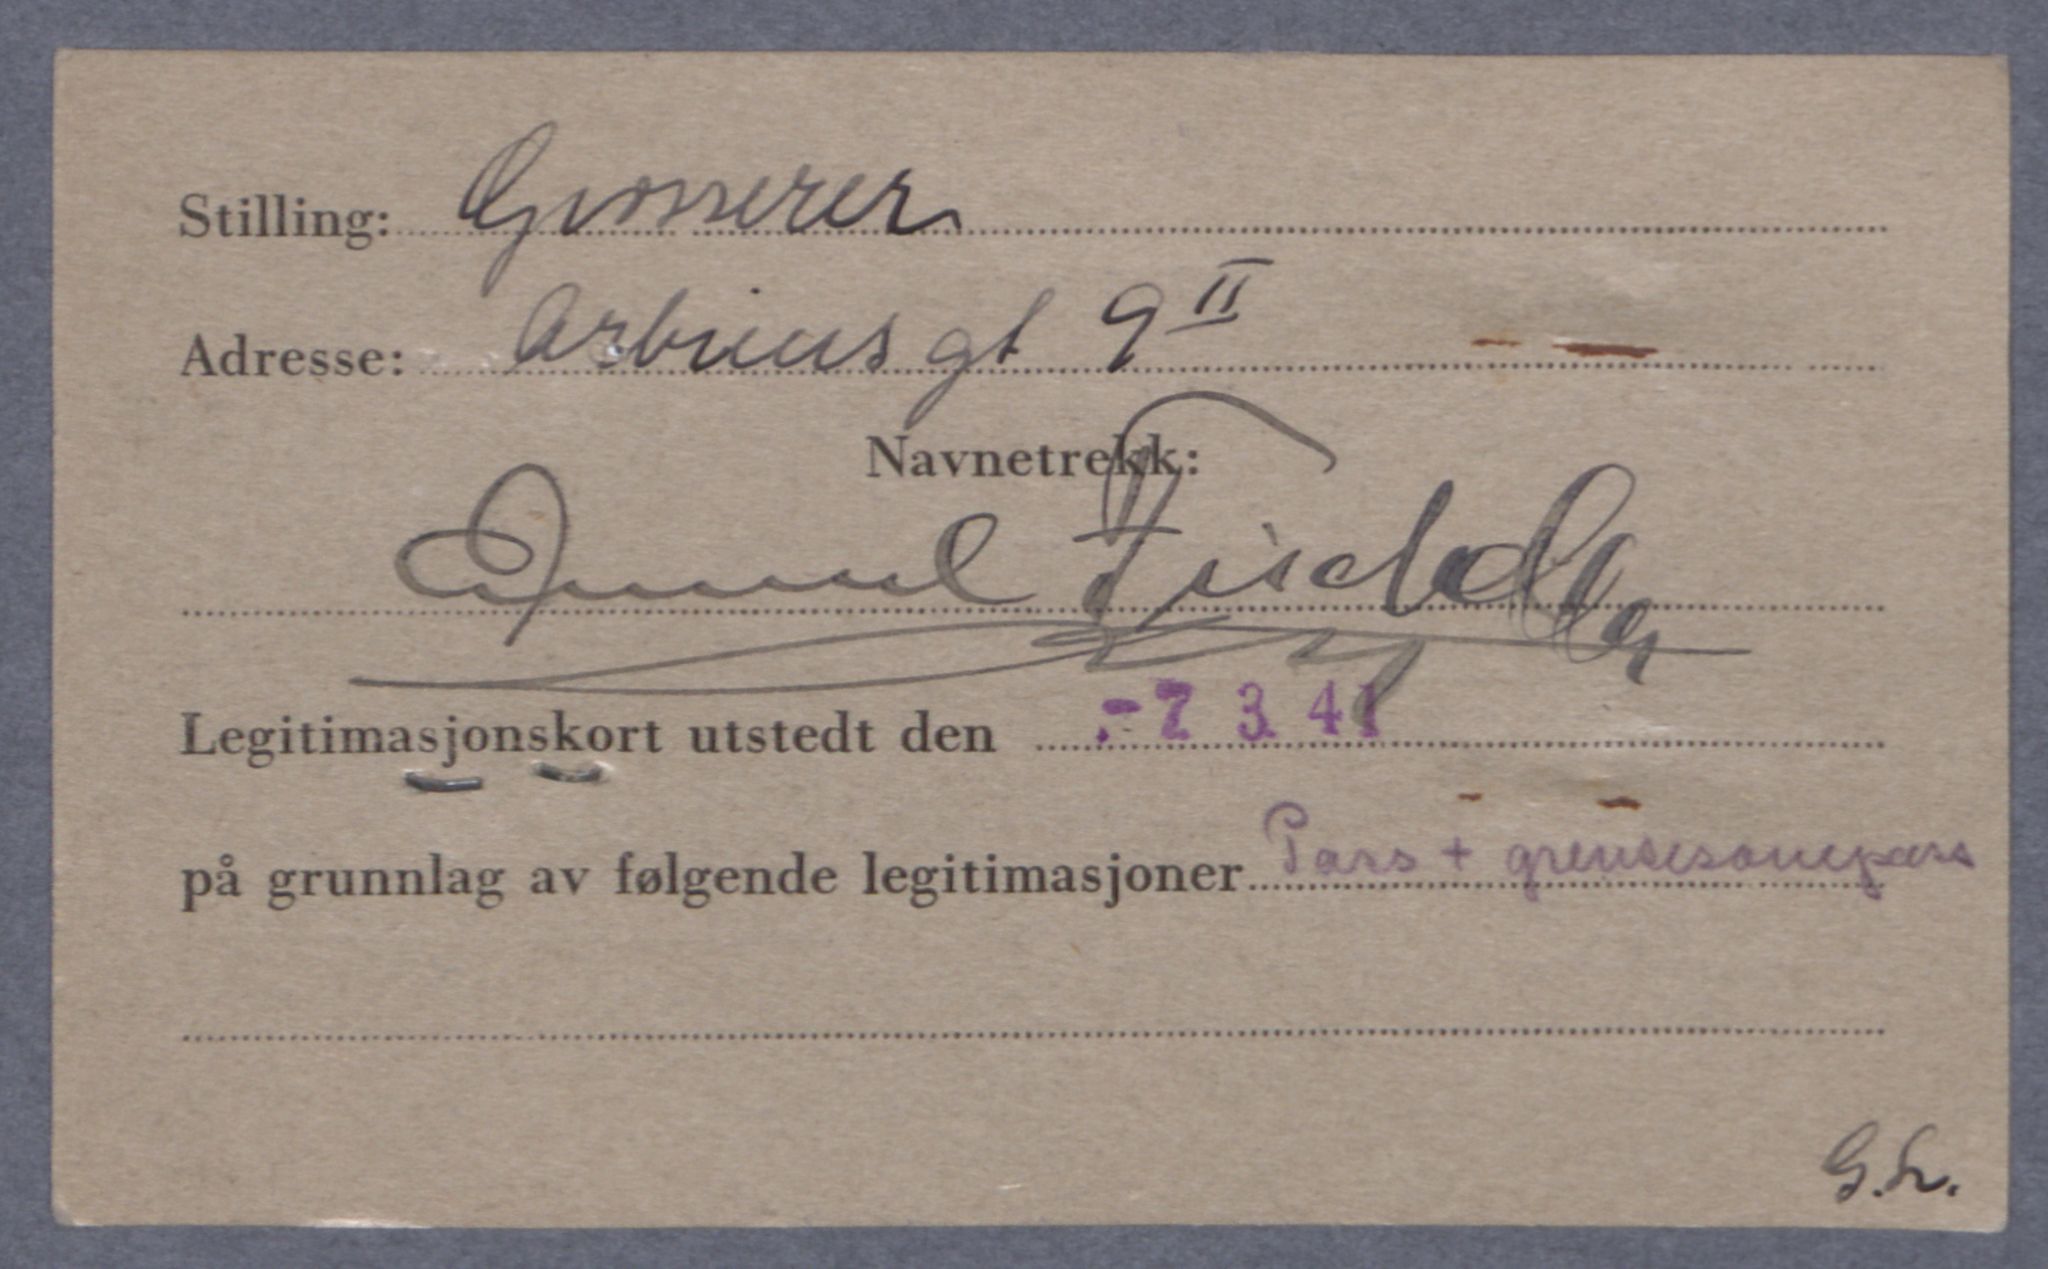 Stilling: Grosserer
Adresse: Arbins gt 9 II
Navnetrekk:
Legitimasjonskort utstedt den - 7 3. 41
på grunnlag av følgende legitimasjoner Pass + grensesonepass